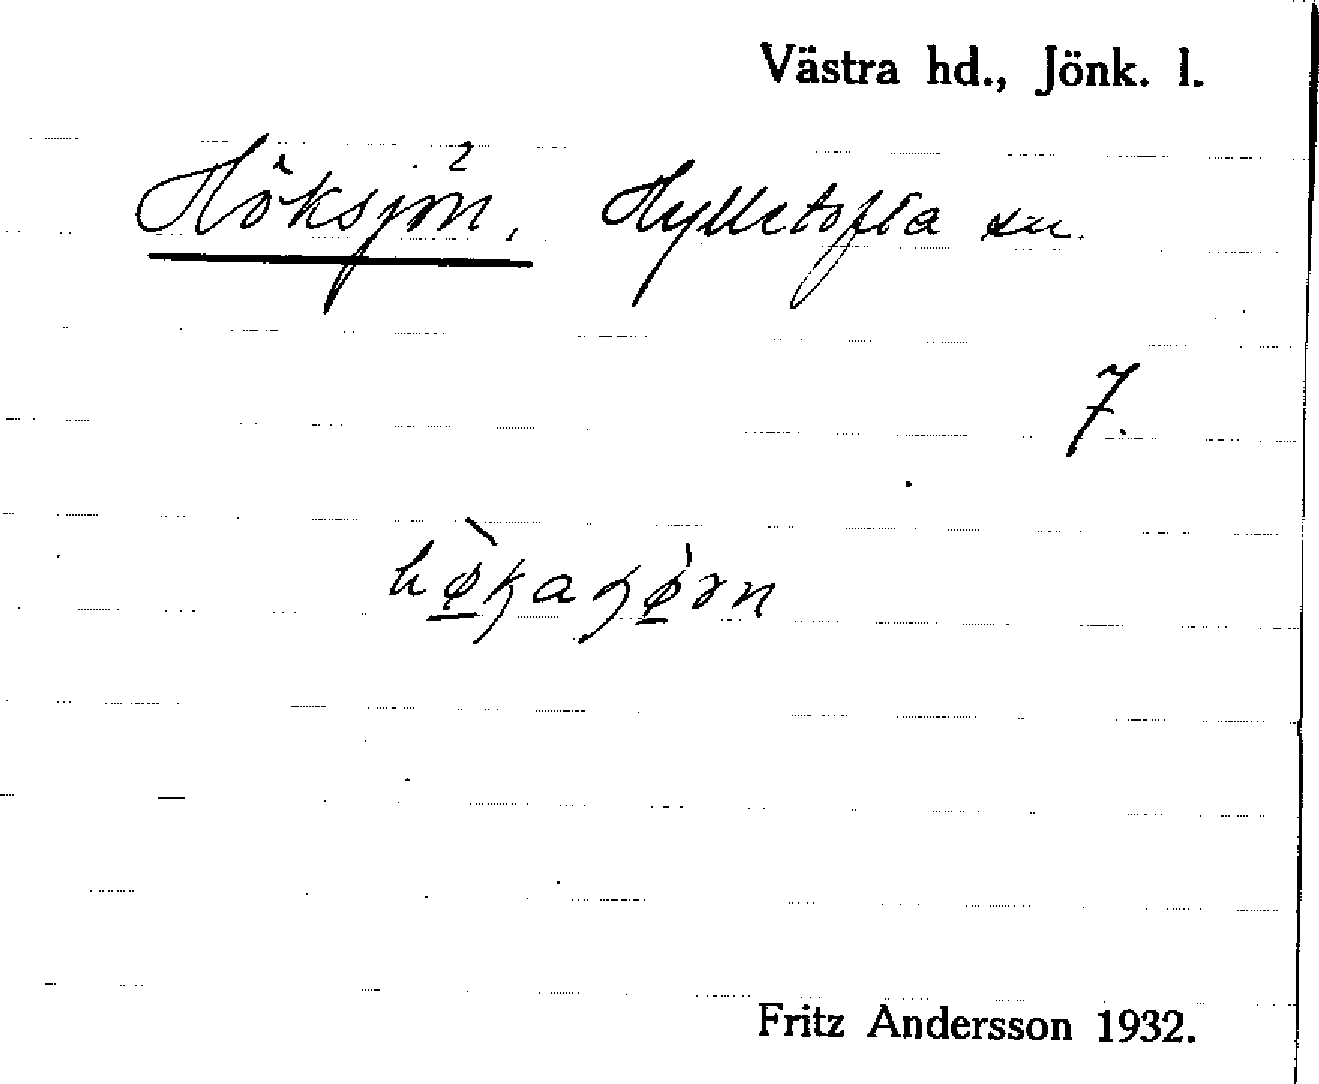 Västra hd., Jönk. l.
Höksjön, Hylletofta sn.
7.
Fritz Andersson 1932.